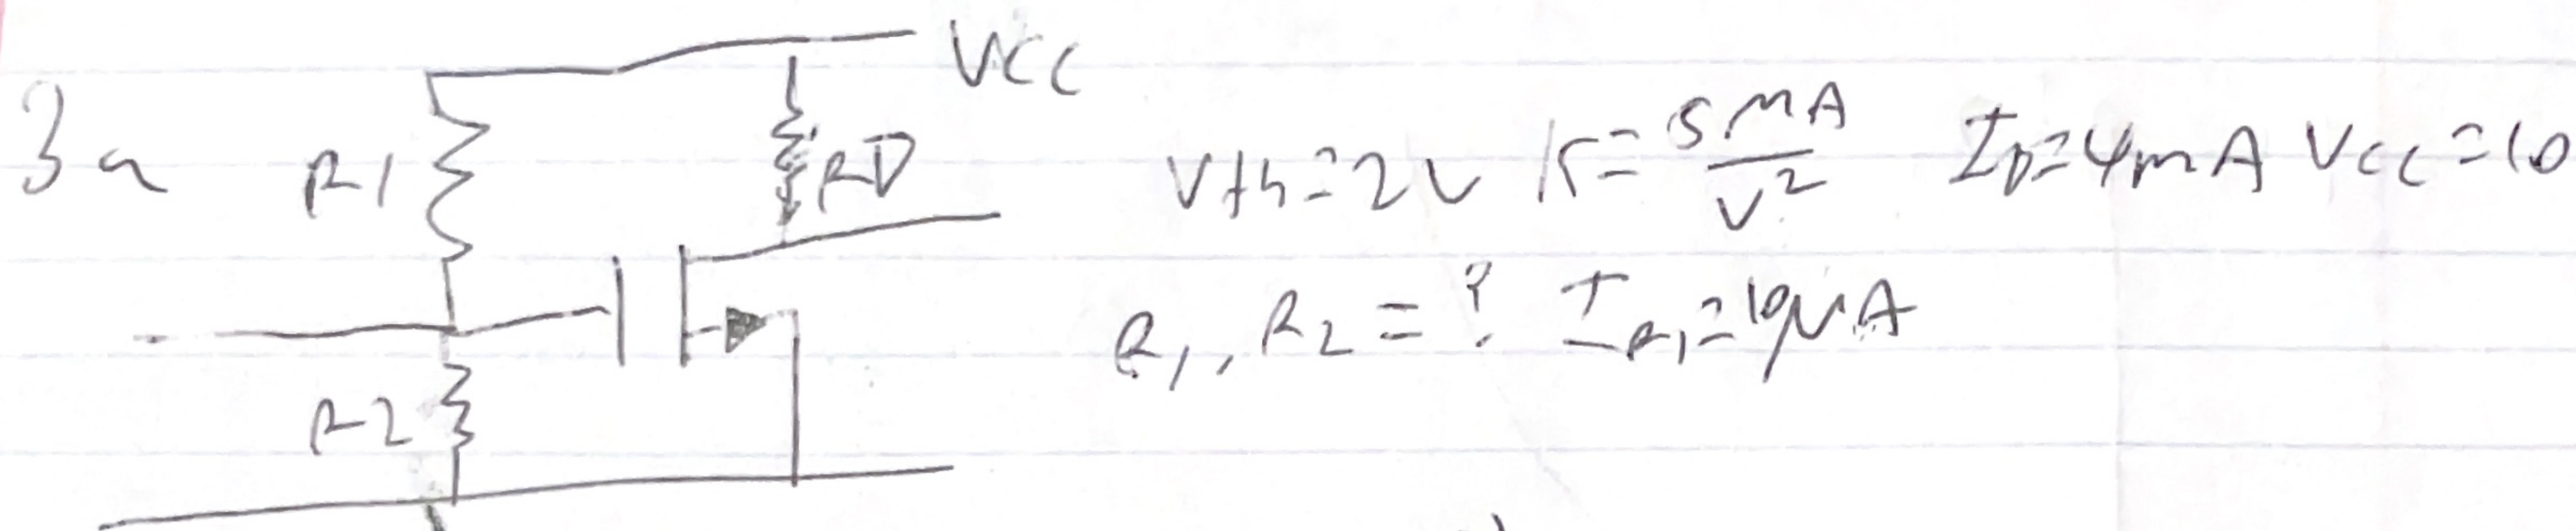 VCC
3a R1 RD Vth=2V K=5mA/V² ID=4mA VCC=10
R1, R2=? IR1=10μA
R2